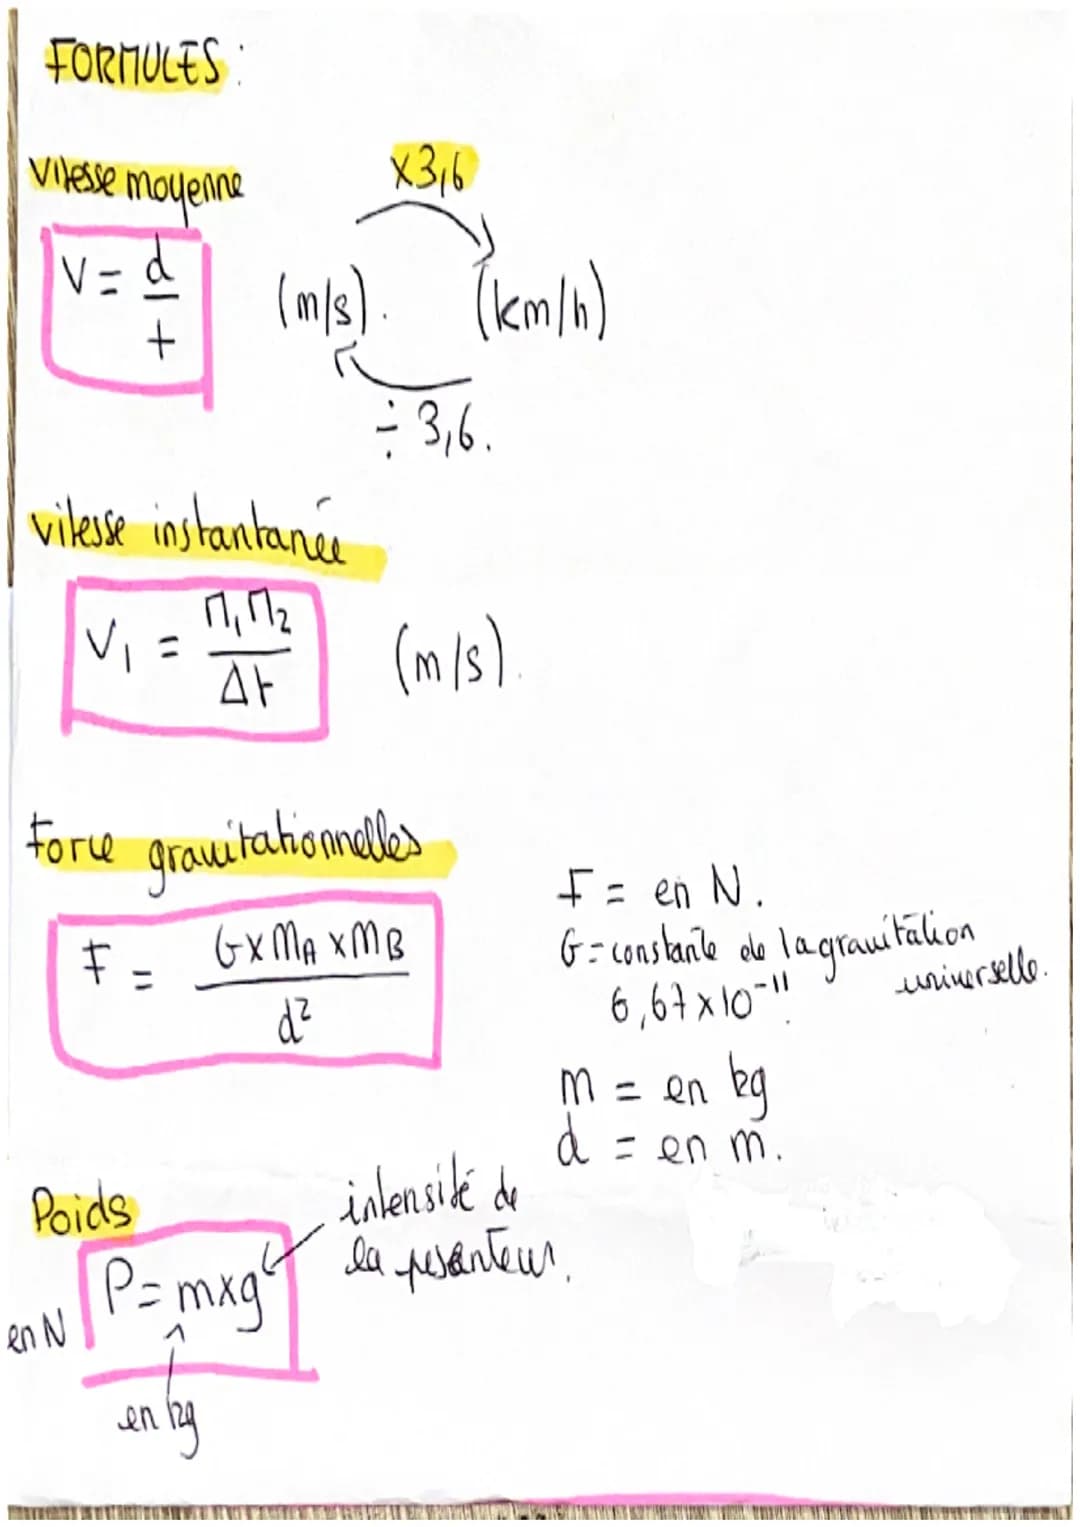 FORMULES :
Vitesse moyenne
x3,6
V = d/t
(m/s). (km/h)
÷ 3,6.
vitesse instantanée
V₁ = M₁M₂/Δt (m/s).
Force gravitationnelles
F = G x MA x MB / d²
F = en N.
G = constante de la gravitation universelle.
6,67 x 10⁻¹¹.
m = en kg
d = en m.
Poids
intensité de
la pesanteur.
P = m x g
en N
en kg